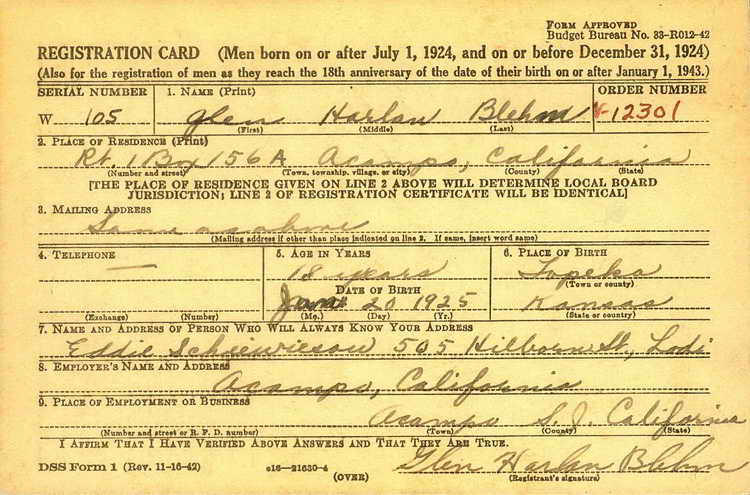 FORM APPROVED
Budget Bureau No. 33-R012-42
REGISTRATION CARD (Men born on or after July 1, 1924, and on or before December 31, 1924)
(Also for the registration of men as they reach the 18th anniversary of the date of their birth on or after January 1, 1943.)
SERIAL NUMBER 1. NAME (Print) ORDER NUMBER
W 105 Glen Harlan Blehm 12301
(First) (Middle) (Last)
2. PLACE OF RESIDENCE (Print)
Rt. 1 Box 156A Acampo, California
(Number and street) (Town, township, village, or city) (County) (State)
[THE PLACE OF RESIDENCE GIVEN ON LINE 2 ABOVE WILL DETERMINE LOCAL BOARD
JURISDICTION; LINE 2 OF REGISTRATION CERTIFICATE WILL BE IDENTICAL]
3. MAILING ADDRESS
Same as above
(Mailing address if other than place indicated on line 2. If same, insert word same)
4. TELEPHONE 5. AGE IN YEARS 6. PLACE OF BIRTH
— 18 years Topeka
DATE OF BIRTH (Town or county)
20 1925 Kansas
(Exchange) (Number) (Mo.) (Day) (Yr.) (State or country)
7. NAME AND ADDRESS OF PERSON WHO WILL ALWAYS KNOW YOUR ADDRESS
Eddie 505 Hilborn St, Lodi
8. EMPLOYER'S NAME AND ADDRESS
Acampo, California
9. PLACE OF EMPLOYMENT OR BUSINESS
Acampo S. J. California
(Number and street or R. F. D. number) (Town) (County) (State)
I AFFIRM THAT I HAVE VERIFIED ABOVE ANSWERS AND THAT THEY ARE TRUE.
DSS Form 1 (Rev. 11-16-42) c16—21630-4 Glen Harlan Blehm
(OVER) (Registrant's signature)